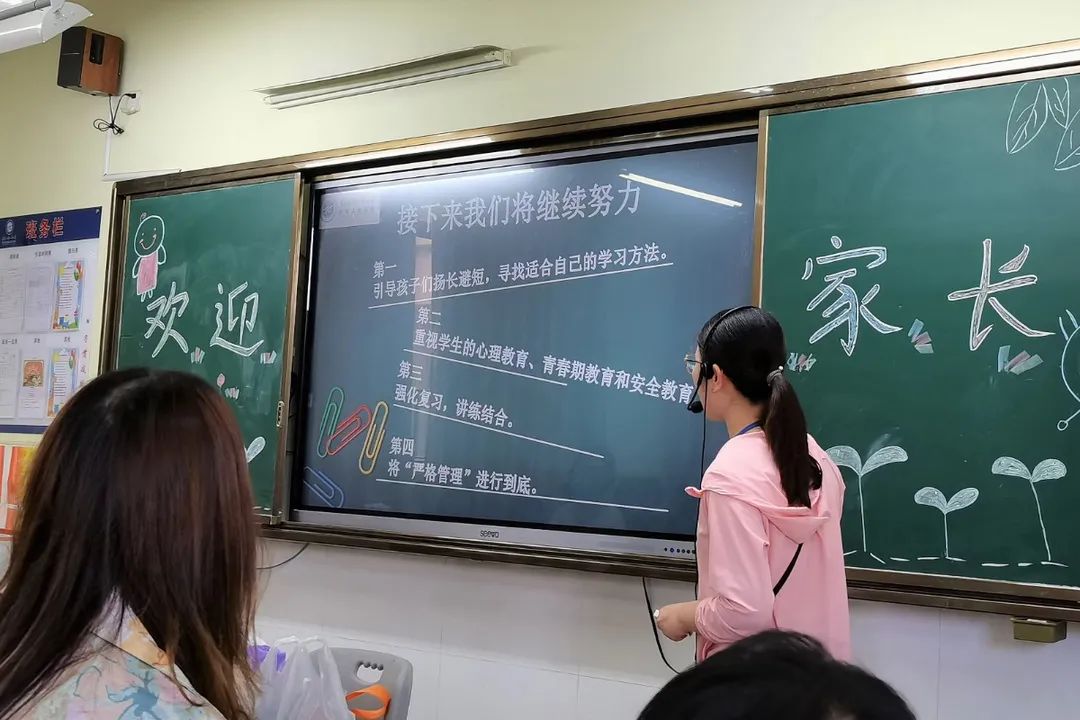 班务栏
欢迎
家长
接下来我们将继续努力
第一
引导孩子们扬长避短，寻找适合自己的学习方法。
第二
重视学生的心理教育、青春期教育和安全教育
第三
强化复习，讲练结合。
第四
将“严格管理”进行到底。
seewo